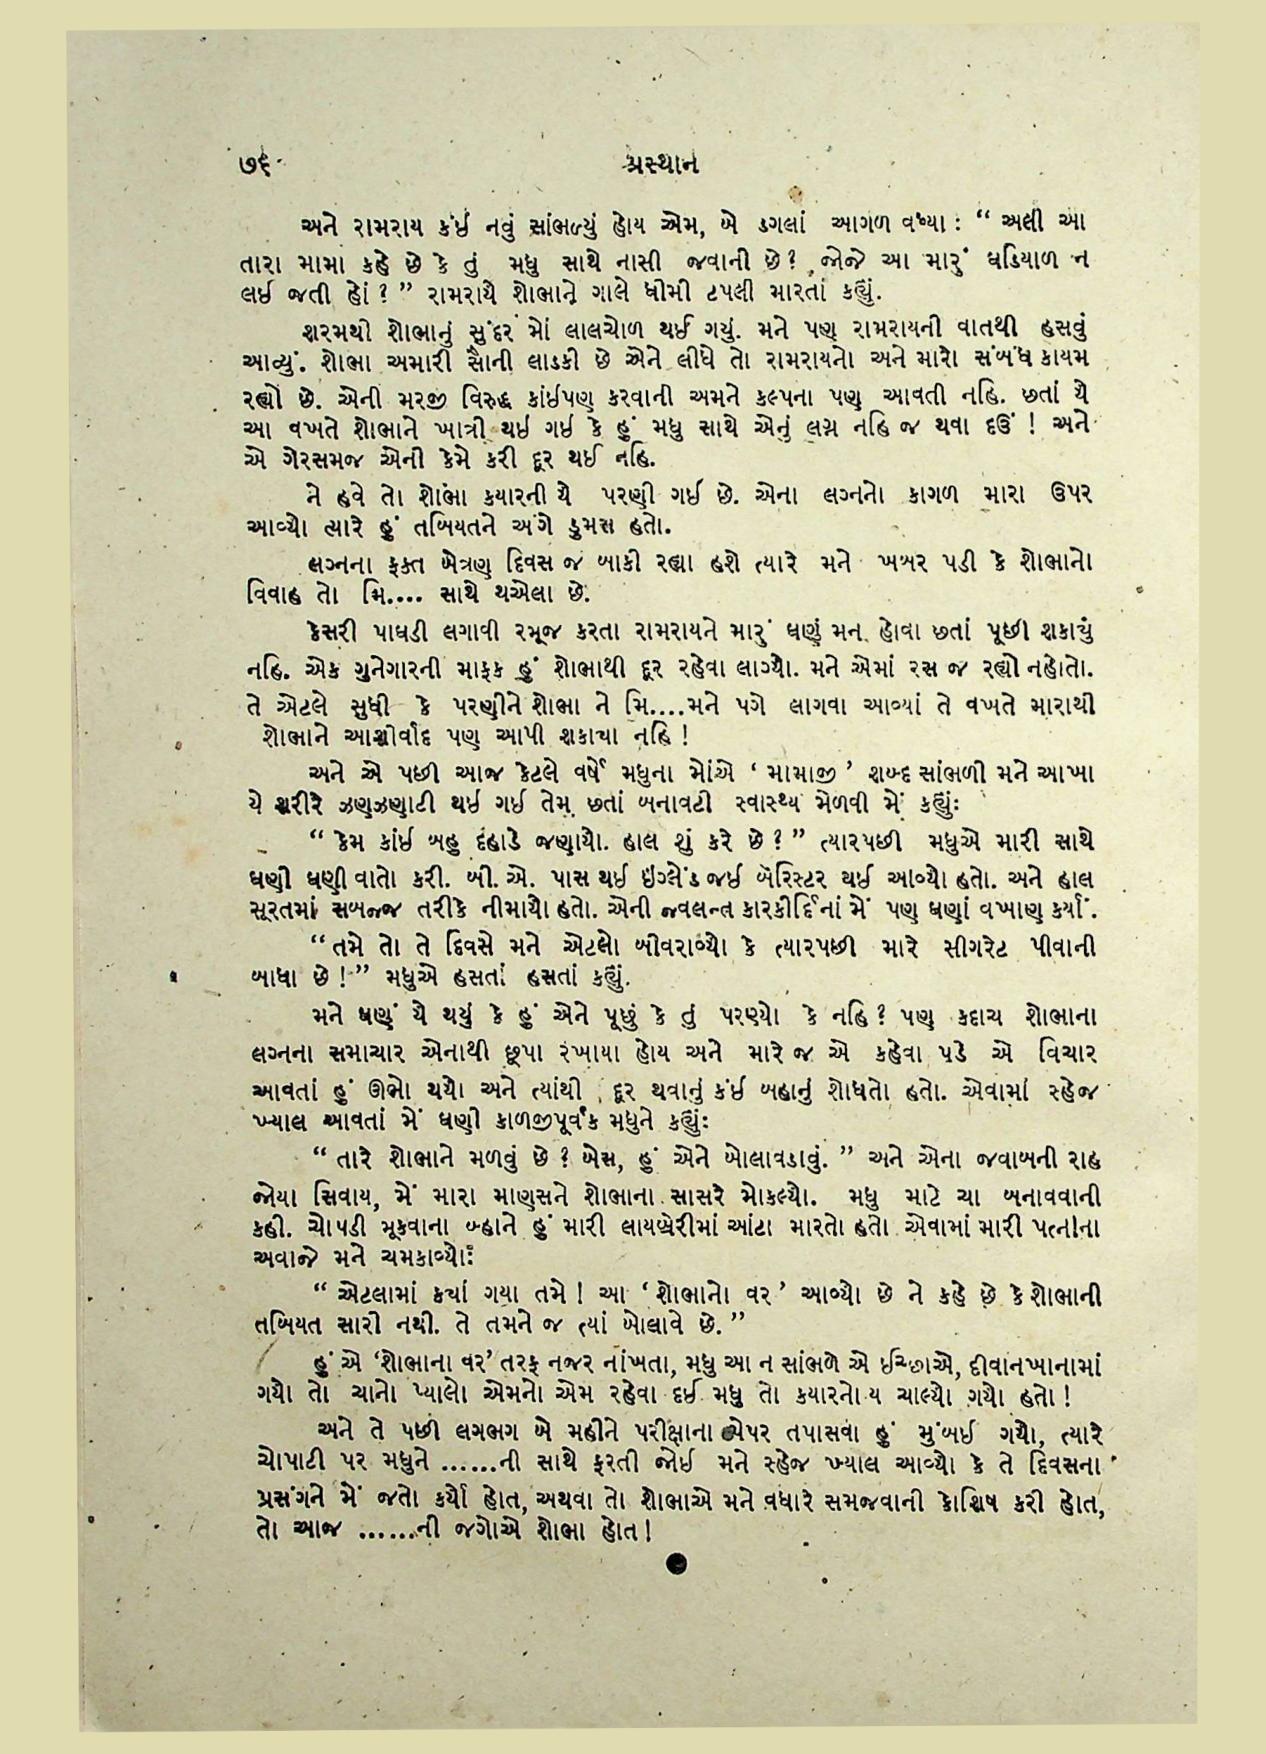 ૭૬
પ્રસ્થાન
અને રામરાય કંઈ નવું સાંભળ્યું હોય એમ, બે ડગલાં આગળ વધ્યા : “ અલી આ
તારા મામા કહે છે કે તું મધુ સાથે નાસી જવાની છે ? જોજે આ મારું ઘડિયાળ ન
લઈ જતી હોં ? ” રામરાયે શોભાને ગાલે ધીમી ટપલી મારતાં કહ્યું.
શરમથી શોભાનું સુંદર મોં લાલચોળ થઈ ગયું. મને પણ રામરાયની વાતથી હસવું
આવ્યું. શોભા અમારી સૌની લાડકી છે એને લીધે તો રામરાયનો અને મારો સંબંધ કાયમ
રહ્યો છે. એની મરજી વિરુદ્ધ કાંઈપણ કરવાની અમને કલ્પના પણ આવતી નહિ. છતાં યે
આ વખતે શોભાને ખાત્રી થઈ ગઈ કે હું મધુ સાથે એનું લગ્ન નહિ જ થવા દઉં ! અને
એ ગેરસમજ એની કેમે કરી દૂર થઈ નહિ.
ને હવે તો શોભા કયારની યે પરણી ગઈ છે. એના લગ્નનો કાગળ મારા ઉપર
આવ્યો ત્યારે હું તબિયતને અંગે ડુમસ હતો.
લગ્નના ફક્ત બેત્રણ દિવસ જ બાકી રહ્યા હશે ત્યારે મને ખબર પડી કે શોભાનો
વિવાહ તો મિ.... સાથે થએલા છે.
કેસરી પાઘડી લગાવી રમૂજ કરતા રામરાયને મારું ઘણું મન હોવા છતાં પૂછી શકાયું
નહિ. એક ગુનેગારની માફક હું શોભાથી દૂર રહેવા લાગ્યો. મને એમાં રસ જ રહ્યો નહોતો.
તે એટલે સુધી કે પરણીને શોભા ને મિ....મને પગે લાગવા આવ્યાં તે વખતે મારાથી
શોભાને આશીર્વાદ પણ આપી શકાયા નહિ !
અને એ પછી આજ કેટલે વર્ષે મધુના મોંએ ‘ મામાજી ’ શબ્દ સાંભળી મને આખા
યે શરીરે ઝણઝણાટી થઈ ગઈ તેમ છતાં બનાવટી સ્વાસ્થ્ય મેળવી મેં કહ્યું:
“ કેમ કાંઈ બહુ દહાડે જણાયો. હાલ શું કરે છે ? ” ત્યારપછી મધુએ મારી સાથે
ઘણી ઘણી વાતો કરી. બી. એ. પાસ થઈ ઇંગ્લેંડ જઈ બૅરિસ્ટર થઈ આવ્યો હતો. અને હાલ
સૂરતમાં સબજ્જ તરીકે નીમાયો હતો. એની જ્વલન્ત કારકીર્દિનાં મેં પણ ઘણાં વખાણ કર્યાં.
“ તમે તો તે દિવસે મને એટલો બીવરાવ્યો કે ત્યારપછી મારે સીગરેટ પીવાની
બાધા છે ! ” મધુએ હસતાં હસતાં કહ્યું.
મને ઘણું યે થયું કે હું એને પૂછું કે તું પરણ્યો કે નહિ ? પણ કદાચ શોભાના
લગ્નના સમાચાર એનાથી છૂપા રખાયા હોય અને મારે જ એ કહેવા પડે એ વિચાર
આવતાં હું ઊભો થયો અને ત્યાંથી દૂર થવાનું કંઈ બહાનું શોધતો હતો. એવામાં સ્હેજ
ખ્યાલ આવતાં મેં ઘણી કાળજીપૂર્વક મધુને કહ્યું:
“ તારે શોભાને મળવું છે ? બેસ, હું એને બોલાવડાવું. ” અને એના જવાબની રાહ
જોયા સિવાય, મેં મારા માણસને શોભાના સાસરે મોકલ્યો. મધુ માટે ચા બનાવવાની
કહી. ચોપડી મૂકવાના બ્હાને હું મારી લાયબ્રેરીમાં આંટા મારતો હતો એવામાં મારી પત્નીના
અવાજે મને ચમકાવ્યો:
“ એટલામાં ક્યાં ગયા તમે ! આ ‘ શોભાનો વર ’ આવ્યો છે ને કહે છે કે શોભાની
તબિયત સારી નથી. તે તમને જ ત્યાં બોલાવે છે. ”
હું એ ‘શોભાના વર’ તરફ નજર નાંખતા, મધુ આ ન સાંભળે એ ઈચ્છાએ, દીવાનખાનામાં
ગયો તો ચાનો પ્યાલો એમનો એમ રહેવા દઈ મધુ તો કયારનો ય ચાલ્યો ગયો હતો !
અને તે પછી લગભગ બે મહીને પરીક્ષાના પેપર તપાસવા હું મુંબઈ ગયો, ત્યારે
ચોપાટી પર મધુને ......ની સાથે ફરતી જોઈ મને સ્હેજ ખ્યાલ આવ્યો કે તે દિવસના
પ્રસંગને મેં જતો કર્યો હોત, અથવા તો શોભાએ મને વધારે સમજવાની કોશિષ કરી હોત,
તો આજ ......ની જગોએ શોભા હોત !